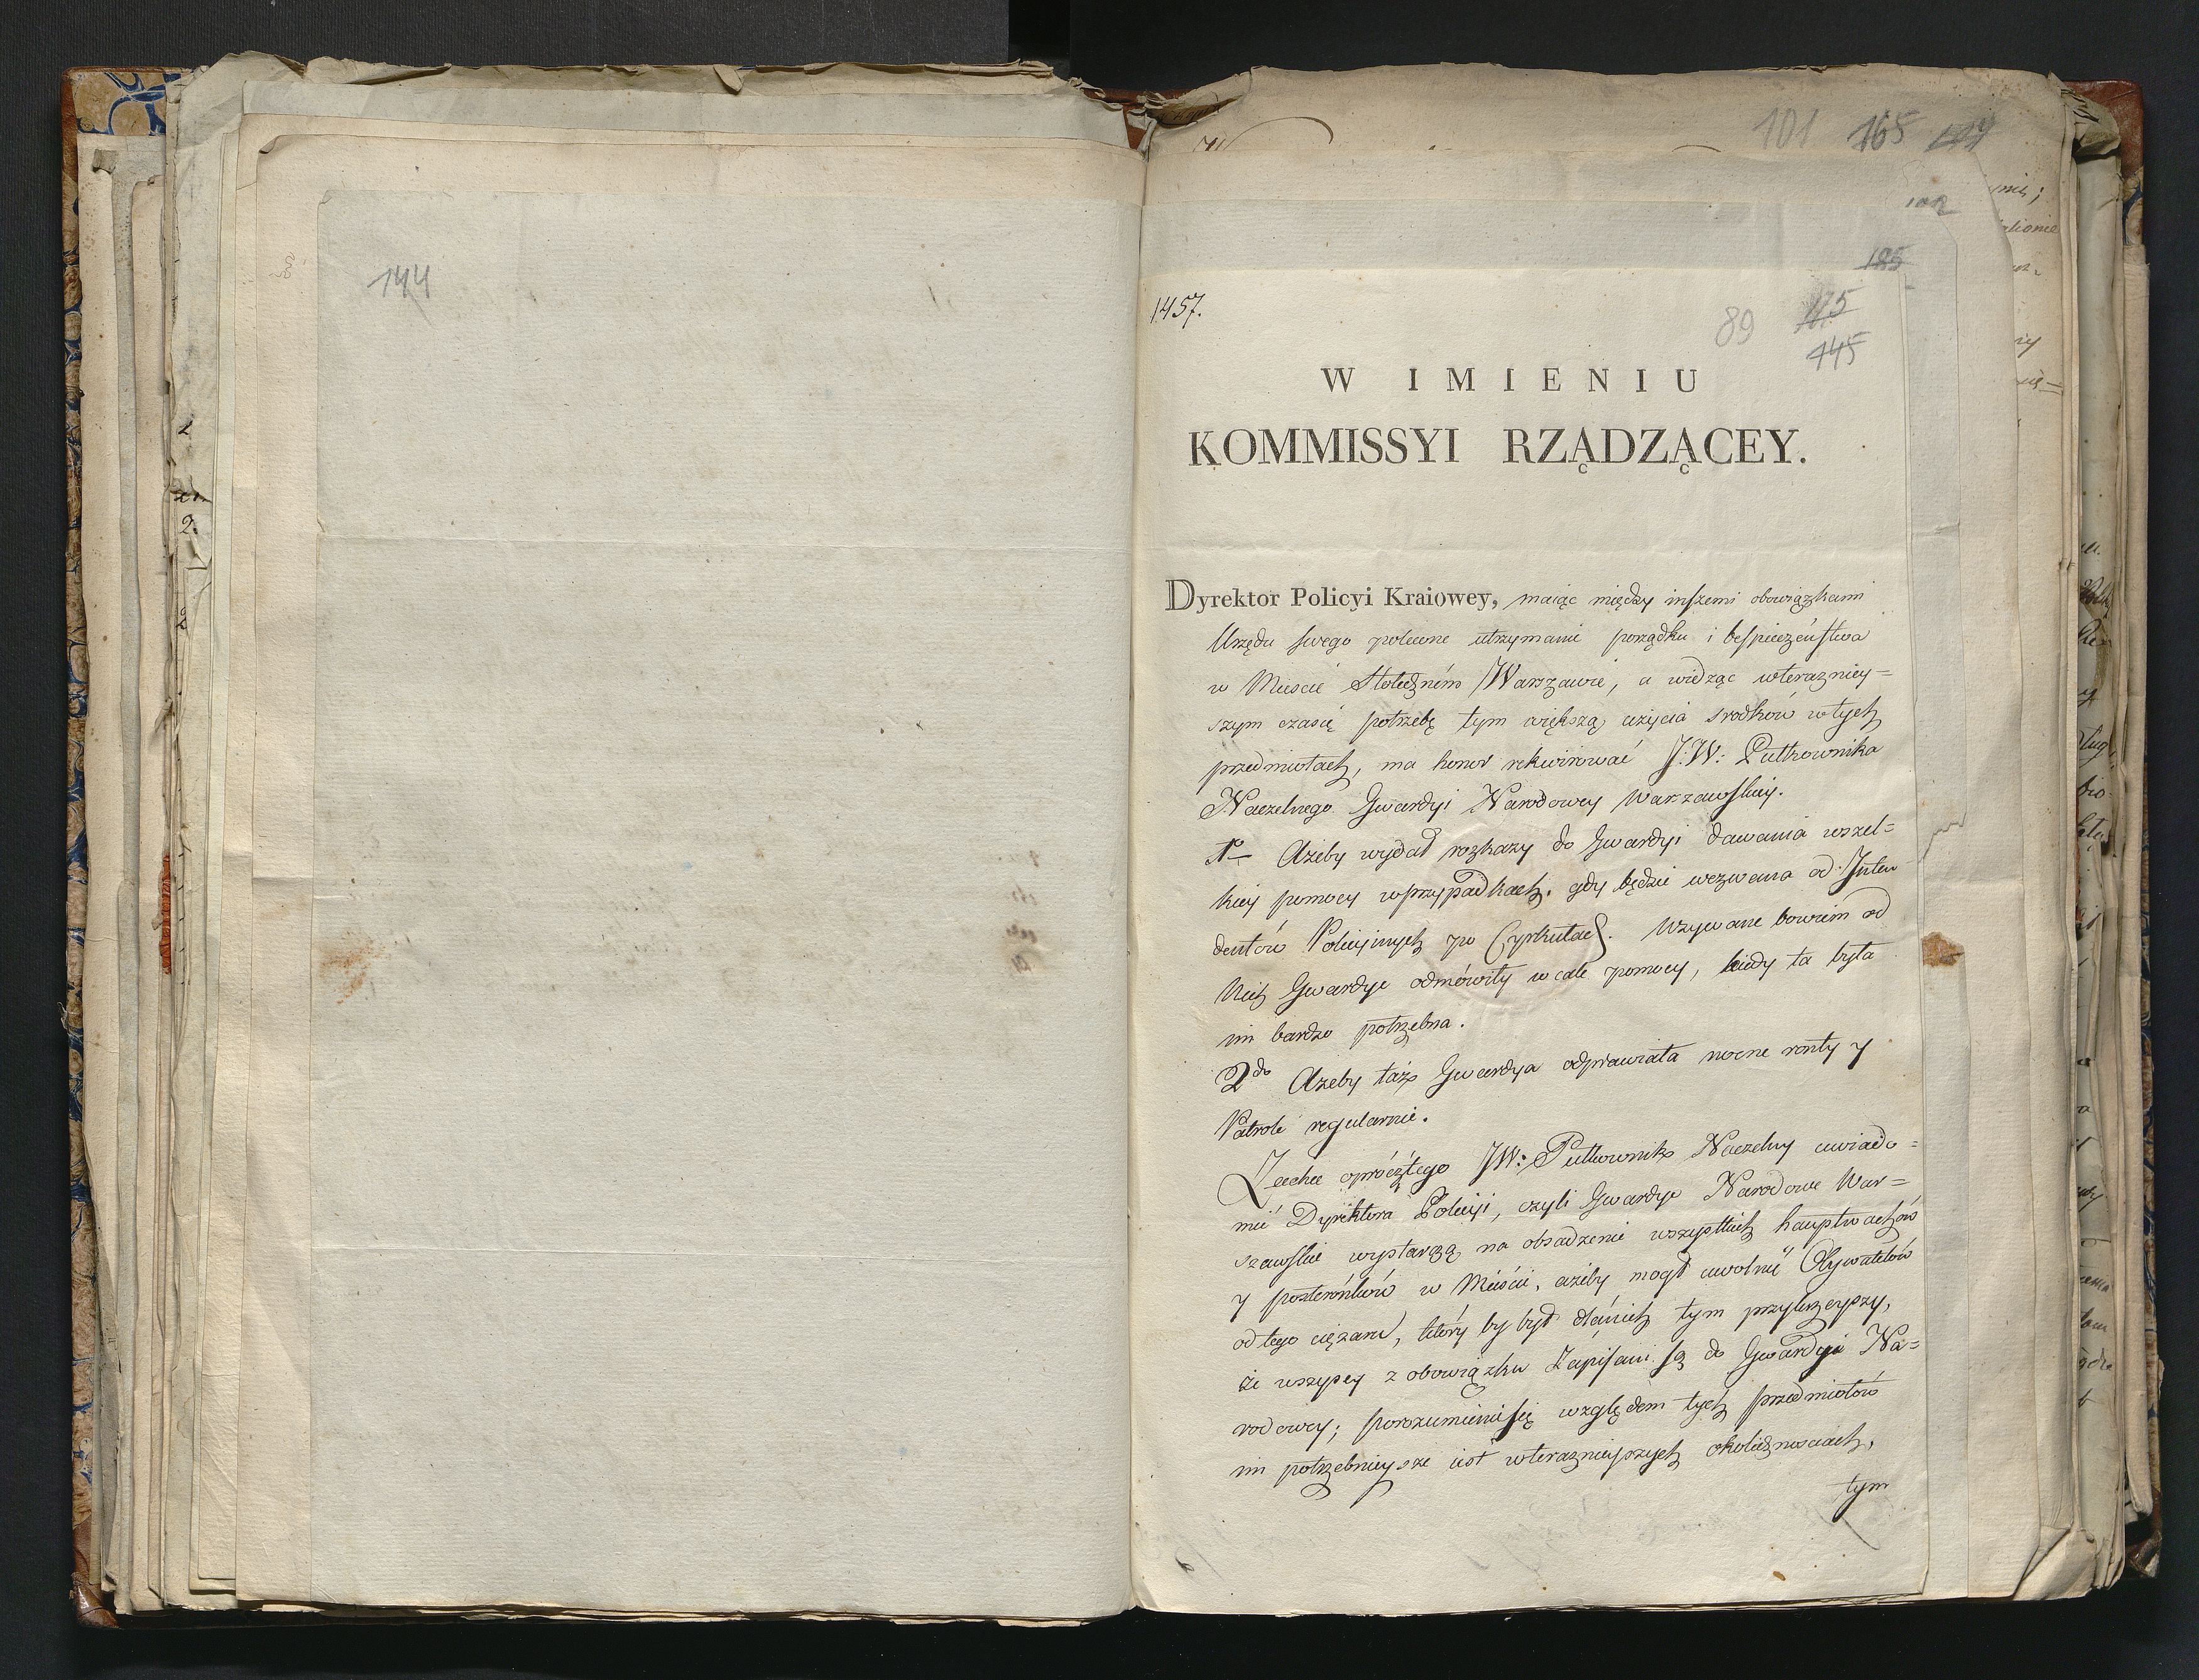 144
101 165
102
185
1457.
89 175
145
W IMIENIU
KOMMISSYI RZĄDZĄCEY.
Dyrektor Policyi Kraiowey, maiąc między inszemi obowiązkami
Urzędu swego polecone utrzymanie porządku i bespieczeństwa
w Mieście Stołeczném Warszawie, a widząc wterazniey=
szym czasie potrzebę tym większą użycia srodków wtych
przedmiotach, ma honor rekwirować J:W: Pułkownika
Naczelnego Gwardyi Narodowey Warszawskiey.
1o Ażeby wydał rozkazy do Gwardyi dawania wszel=
kiey pomocy wprzypadkach, gdy będzie wezwana od Inten
dentów Policyinych po Cyrkułach. Wzywane bowiem od
Nich Gwardye odmówiły wcale pomocy, kiedy ta była
im bardzo potrzebna.
2do Ażeby taż Gwardya odprawiała nocne ronty y
Patrole regularnie.
Zechce oprócztego JW: Pułkownik Naczelny uwiado=
mić Dyrektora Policyi, czyli Gwardye Narodowe War=
szawskie wystarczą na obsadzenie wszystkich hauptwachów
y posterónków w Mieście, ażeby mogł uwolnić Obywatelów
od tego ciężaru, który by był dlánich tym przykrzeyszy,
że wszyscy z obowiązku Zapisani są do Gwardyi Na=
rodowey; porozumieniesię względem tych przedmiotów
im potrzebnieysze iest wteraznieyszych okolicznosciach,
tym